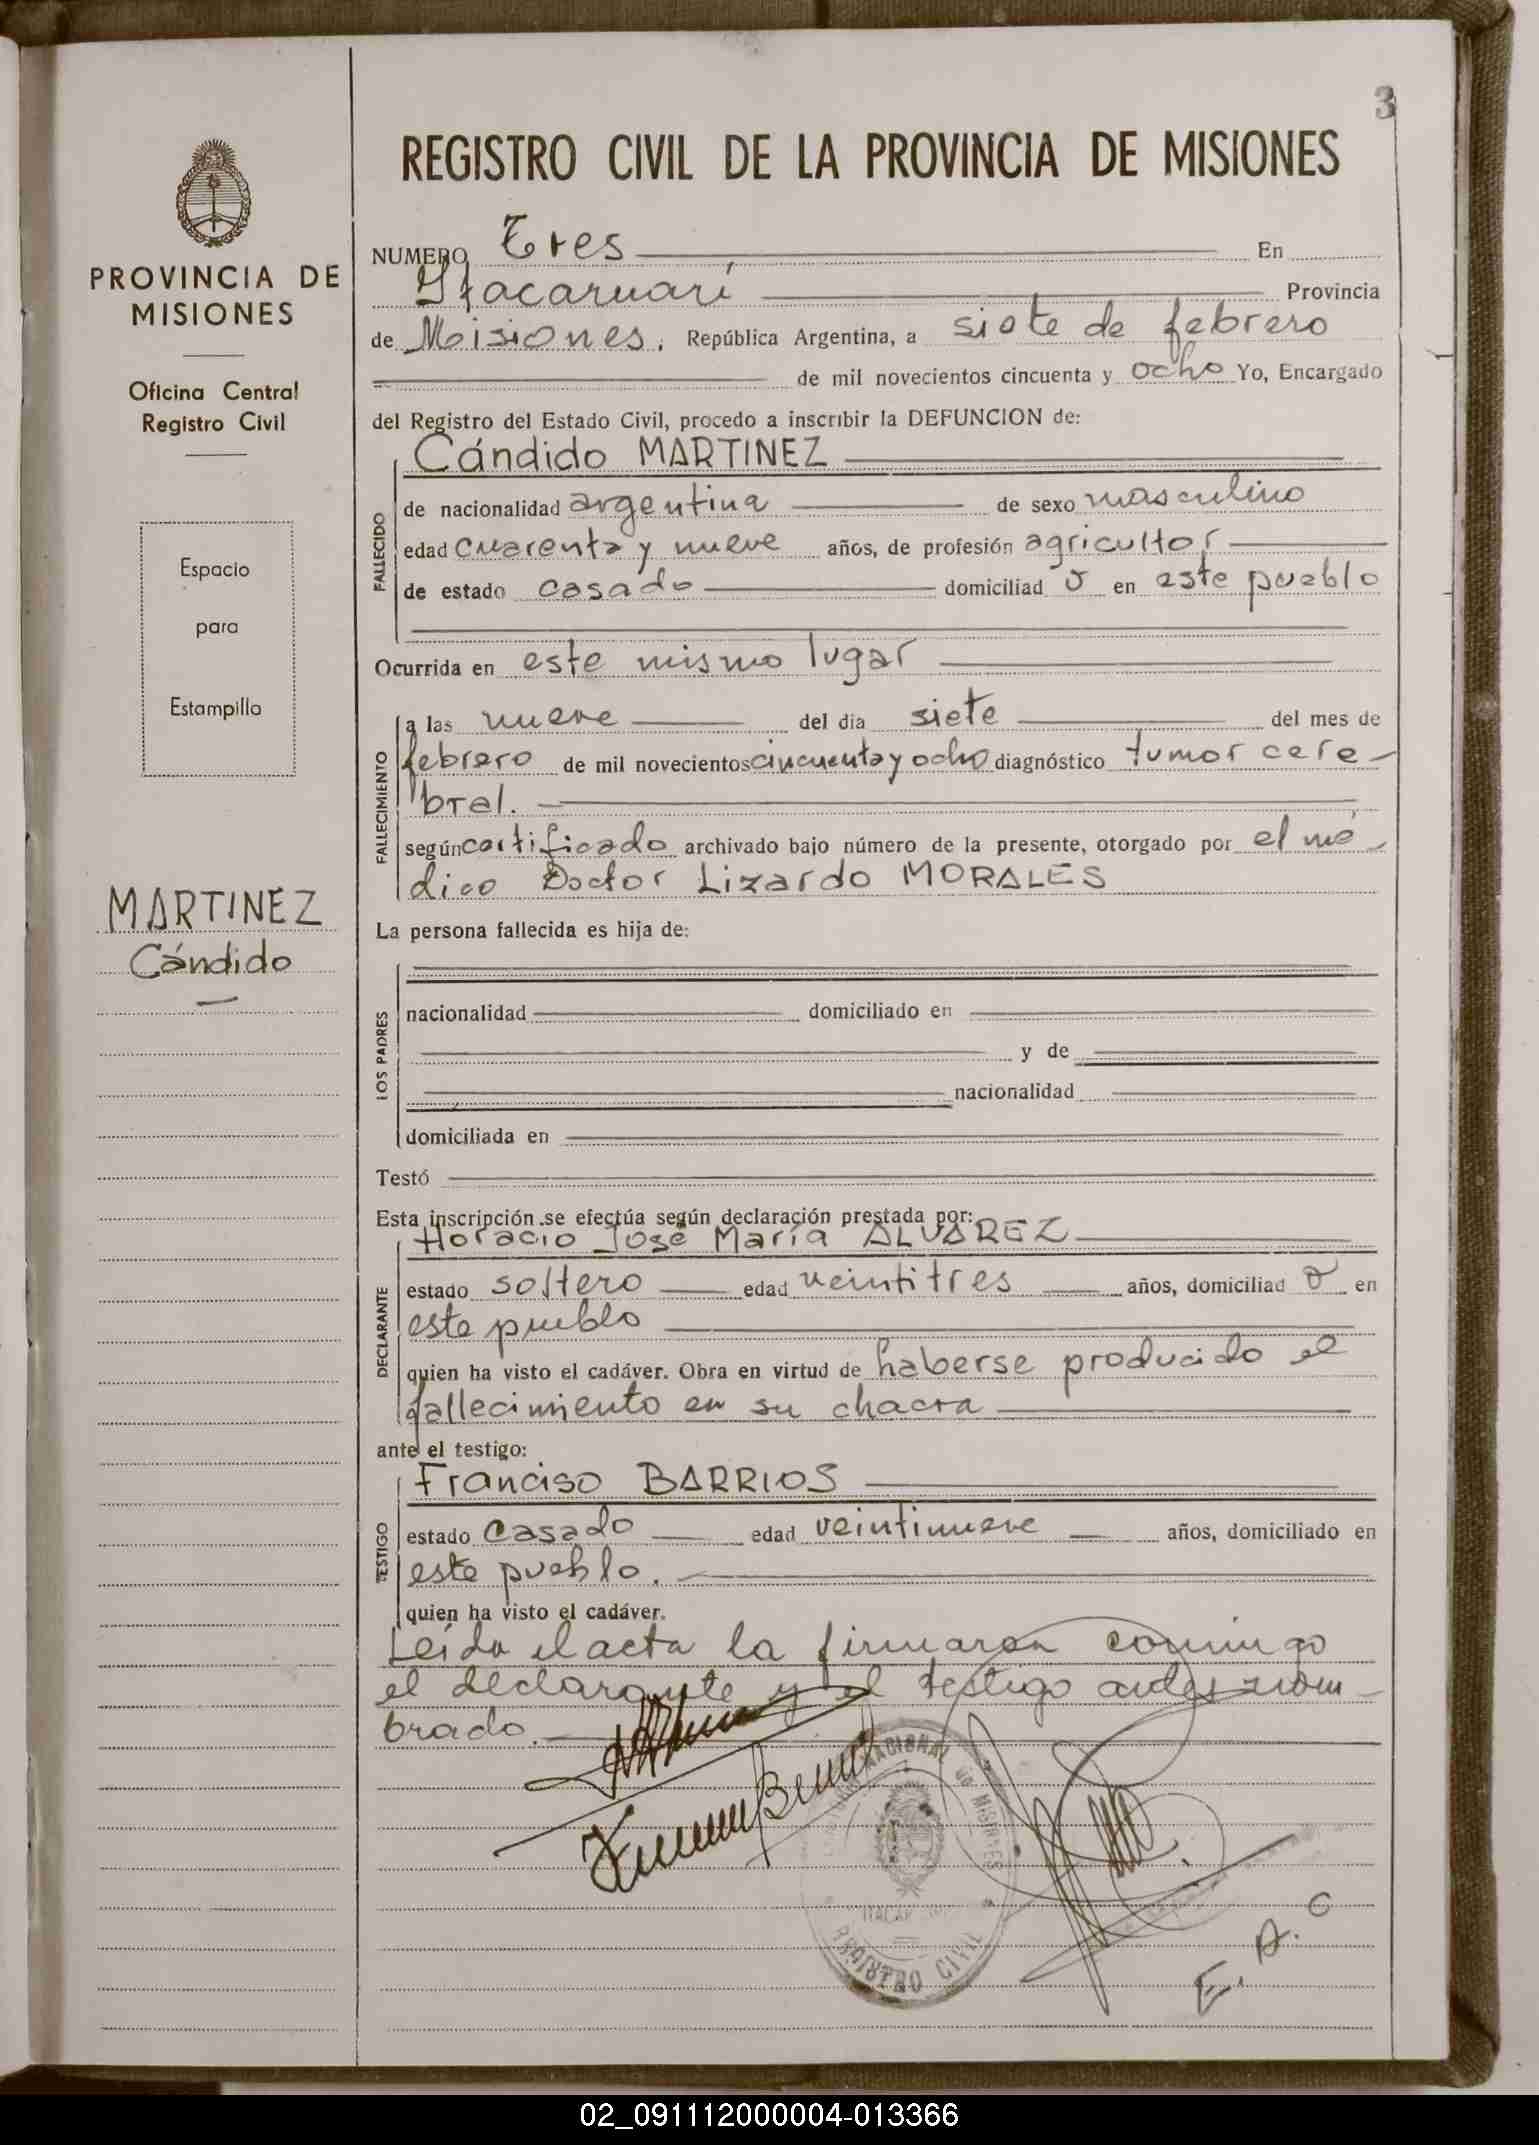 3
REGISTRO CIVIL DE LA PROVINCIA DE MISIONES
PROVINCIA DE
MISIONES
Oficina Central
Registro Civil
Espacio
para
Estampilla
MARTINEZ
Cándido
NUMERO Tres En
Itacaruarí Provincia
de Misiones, República Argentina, a siete de febrero
de mil novecientos cincuenta y ocho Yo, Encargado
del Registro del Estado Civil, procedo a inscribir la DEFUNCION de:
Cándido MARTINEZ
FALLECIDO
de nacionalidad argentina de sexo masculino
edad cuarenta y nueve años, de profesión agricultor
de estado casado domiciliad o en este pueblo
Ocurrida en este mismo lugar
FALLECIMIENTO
a las nueve del dia siete del mes de
febrero de mil novecientos cincuenta y ocho diagnóstico tumor cere-
bral.
según certificado archivado bajo número de la presente, otorgado por el mé-
dico Doctor Lizardo MORALES
La persona fallecida es hija de:
LOS PADRES
nacionalidad domiciliado en
y de
nacionalidad
domiciliada en
Testó
Esta inscripción se efectúa según declaración prestada por:
Horacio José María ALVAREZ
DECLARANTE
estado soltero edad veintitres años, domiciliad o en
este pueblo
quien ha visto el cadáver. Obra en virtud de haberse producido el
fallecimiento en su chacra
ante el testigo:
Franciso BARRIOS
TESTIGO
estado casado edad veintinueve años, domiciliado en
este pueblo.
quien ha visto el cadáver.
Leída el acta la firmaron conmigo
el declarante y el testigo antes nom-
brado.
NACIONAL de MISIONES
REGISTRO CIVIL
E. A. C
02_091112000004-013366